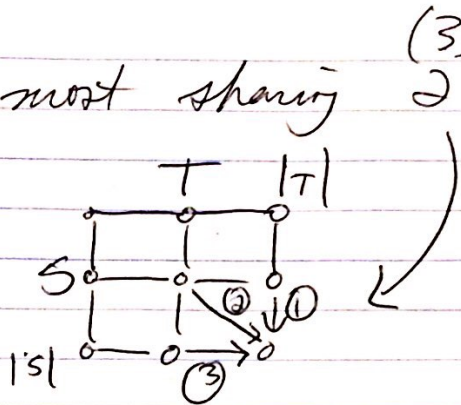 (3)
most sharing 2
T |T|
S
② ①
|S| ③